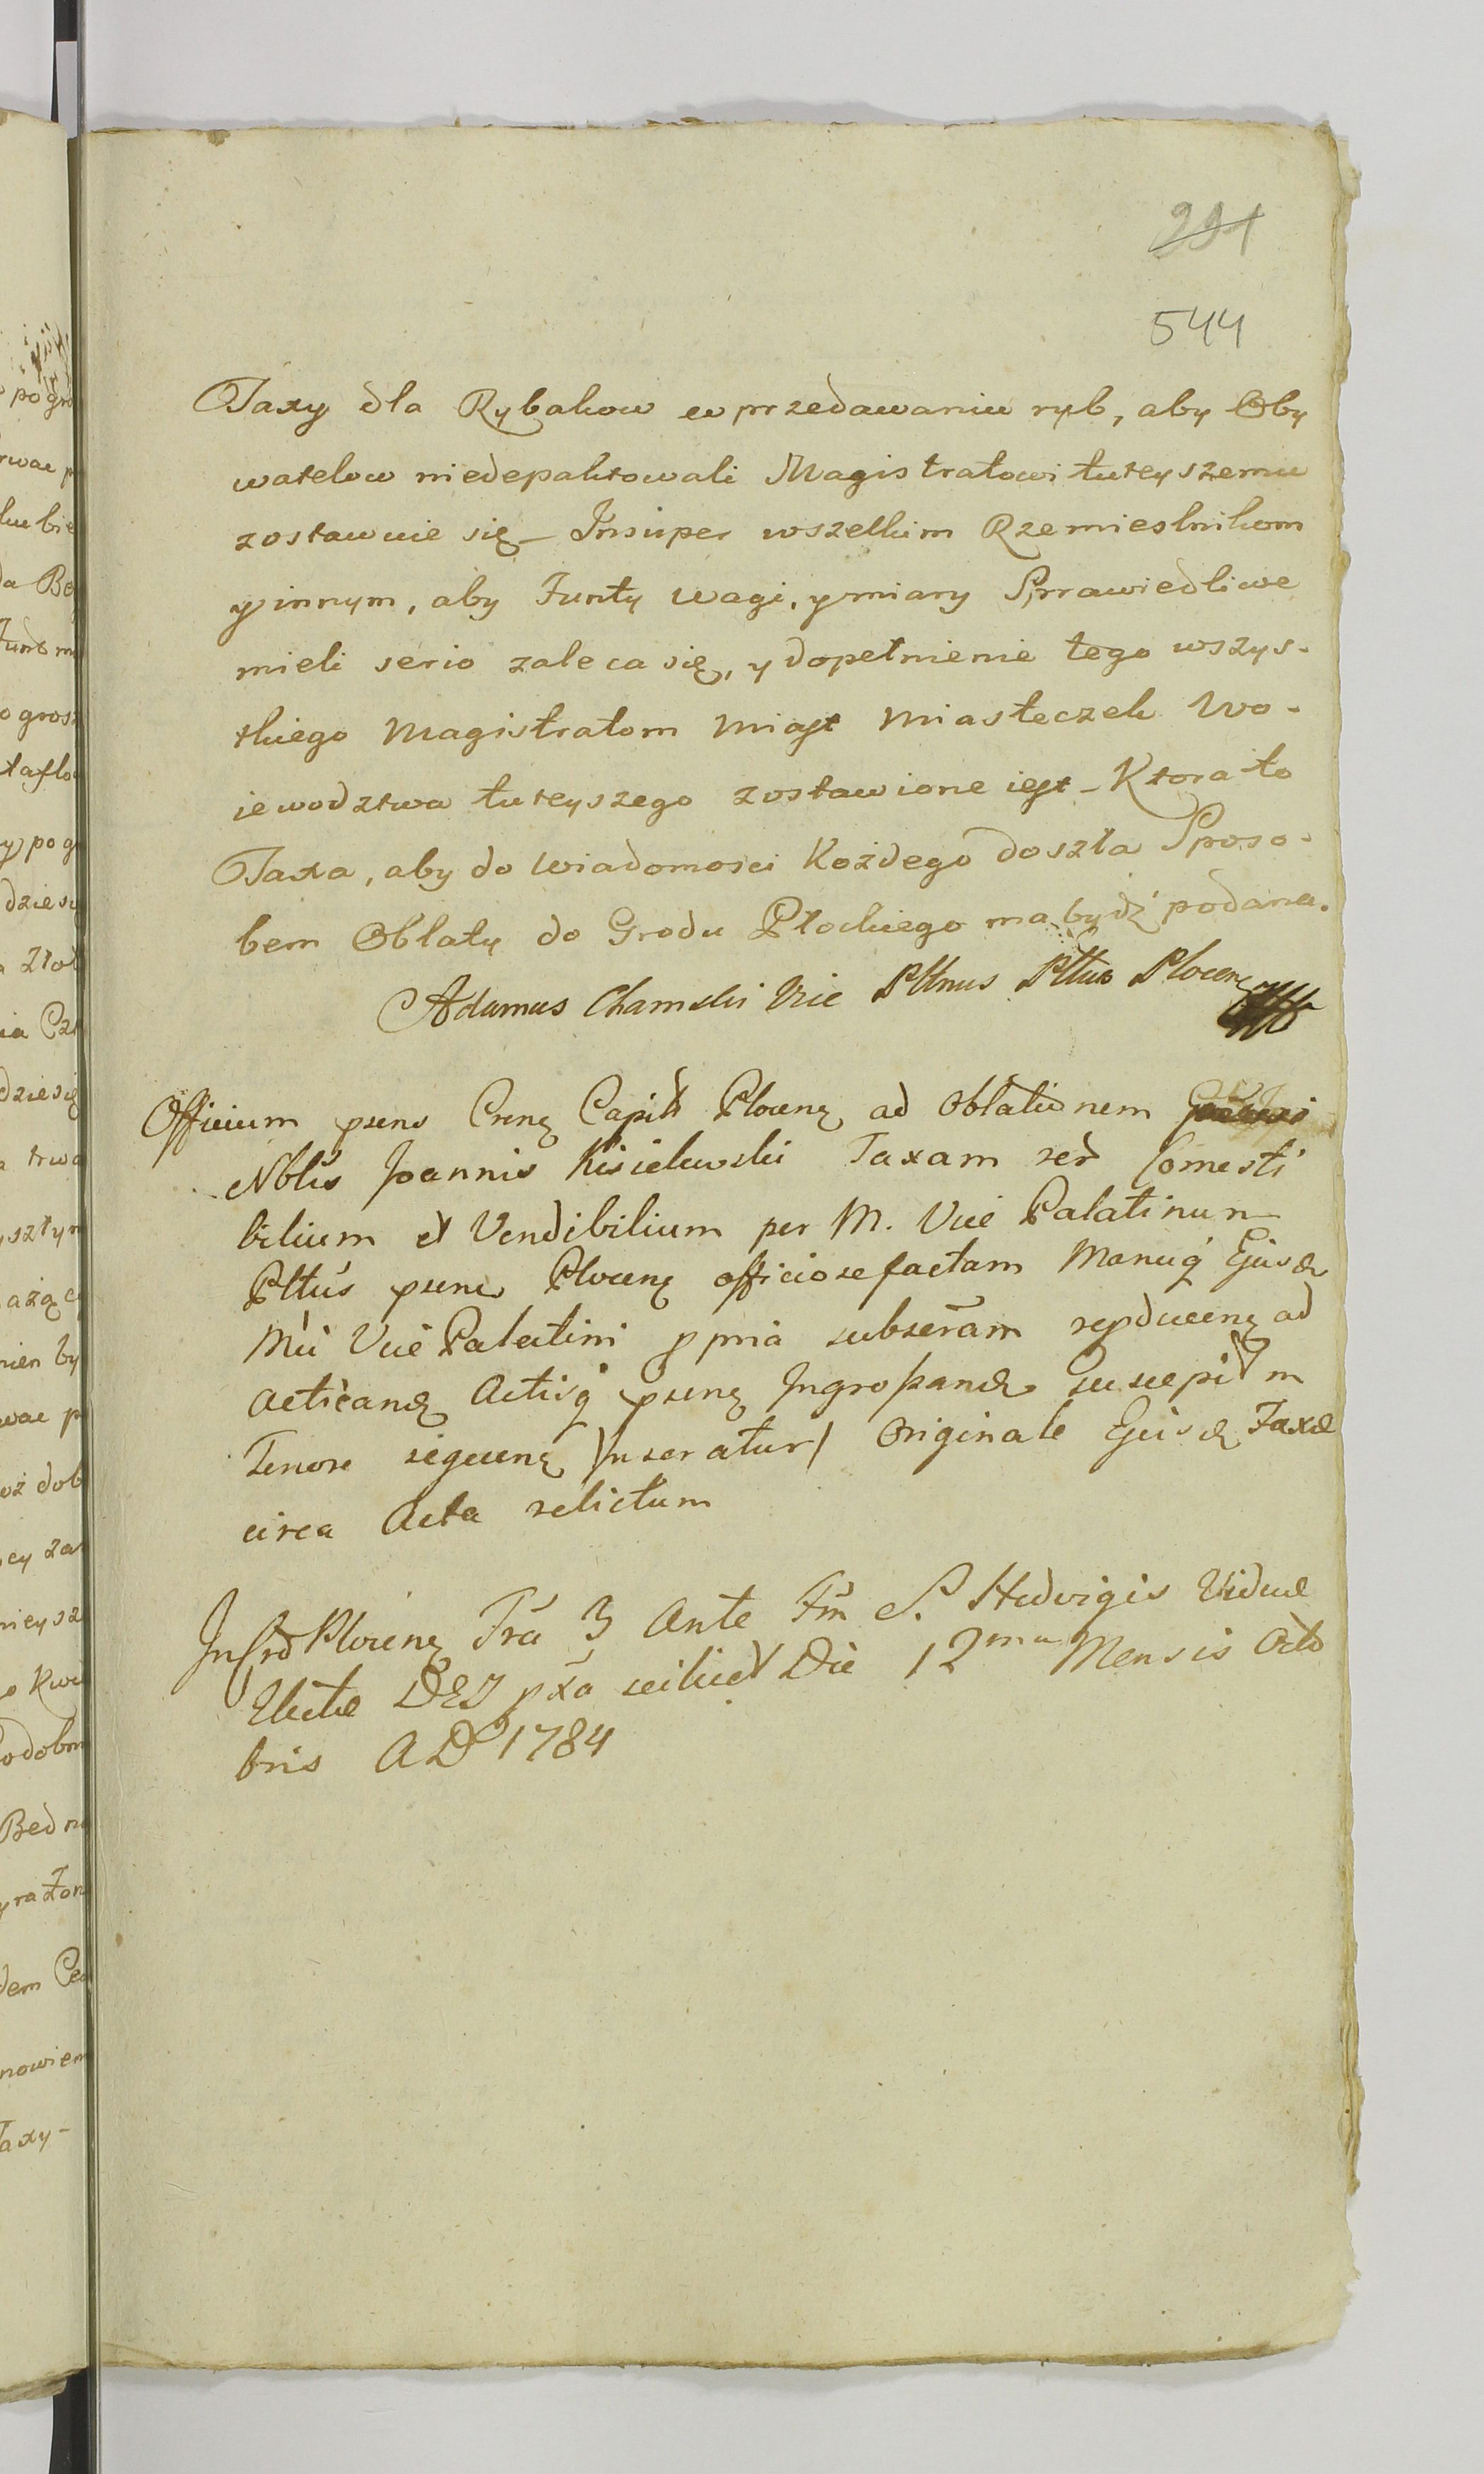 291
544
Taxy dla Rybakow w przedawaniu ryb, aby Oby
watelow niedepaktowali Magistratowi tuteyszemu
zostawuie się – Insuper wszelkim Rzemieslnikom
y innym, aby Funty wagi, y miary Sprawiedliwe
mieli serio zaleca się, y dopełnienie tego wszys-
tkiego Magistratom Miast Miasteczek Wo-
iewodztwa tuteyszego zostawione iest – Ktora to
Taxa, aby do wiadomosci Kożdego doszła Sposo-
bem Oblaty do Grodu Płockiego ma bydź podana.
Adamus Chamski Vice Pltnus Pltus Plocen
Officium psens Capit Plocen ad Oblationem
Nblis Joannis Kisielewski Taxam rer Comesti
bilium et Vendibilium per M. Vice Palatinum
Pltus psens Plocen officiose factam Manuq Ejusd
Mci Vice Palatini ppria subscram repducen ad
acticand Actisq psen Ingrossand suscepit m
Tenore sequen Inseratur / Originale Ejusd Taxæ
circa Acta relictum
Plocen Fra 3 Ante Fm S. Hedvigis Viduæ
Electæ pxa scilicet Die 12ma Mensis Octo
bris AD 1784